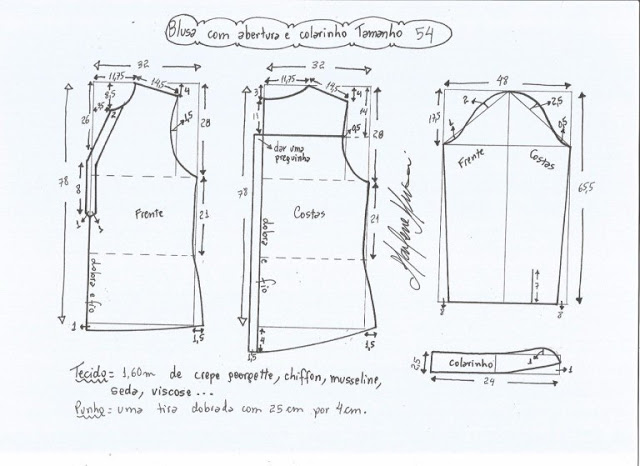 Blusa com abertura e colarinho Tamanho 54
32
11,75
14,5
4
8,5
3,5
2
26
1,5
28
78
8
1
1
Frente
21
dobra e fio
1
1,5
32
11,75
14,5
3
4
11
0,5
14
28
dar uma
preguinha
78
Costas
21
dobra e fio
4
1,5
1,5
Marlene Mukai
48
17,5
2
2,5
1
0,5
Frente
Costas
65,5
7
8
8
2,5
colarinho
1
1
24
Tecido = 1,60m de crepe georgette, chiffon, musseline,
seda, viscose ...
Punho = uma tira dobrada com 25 cm por 4 cm.